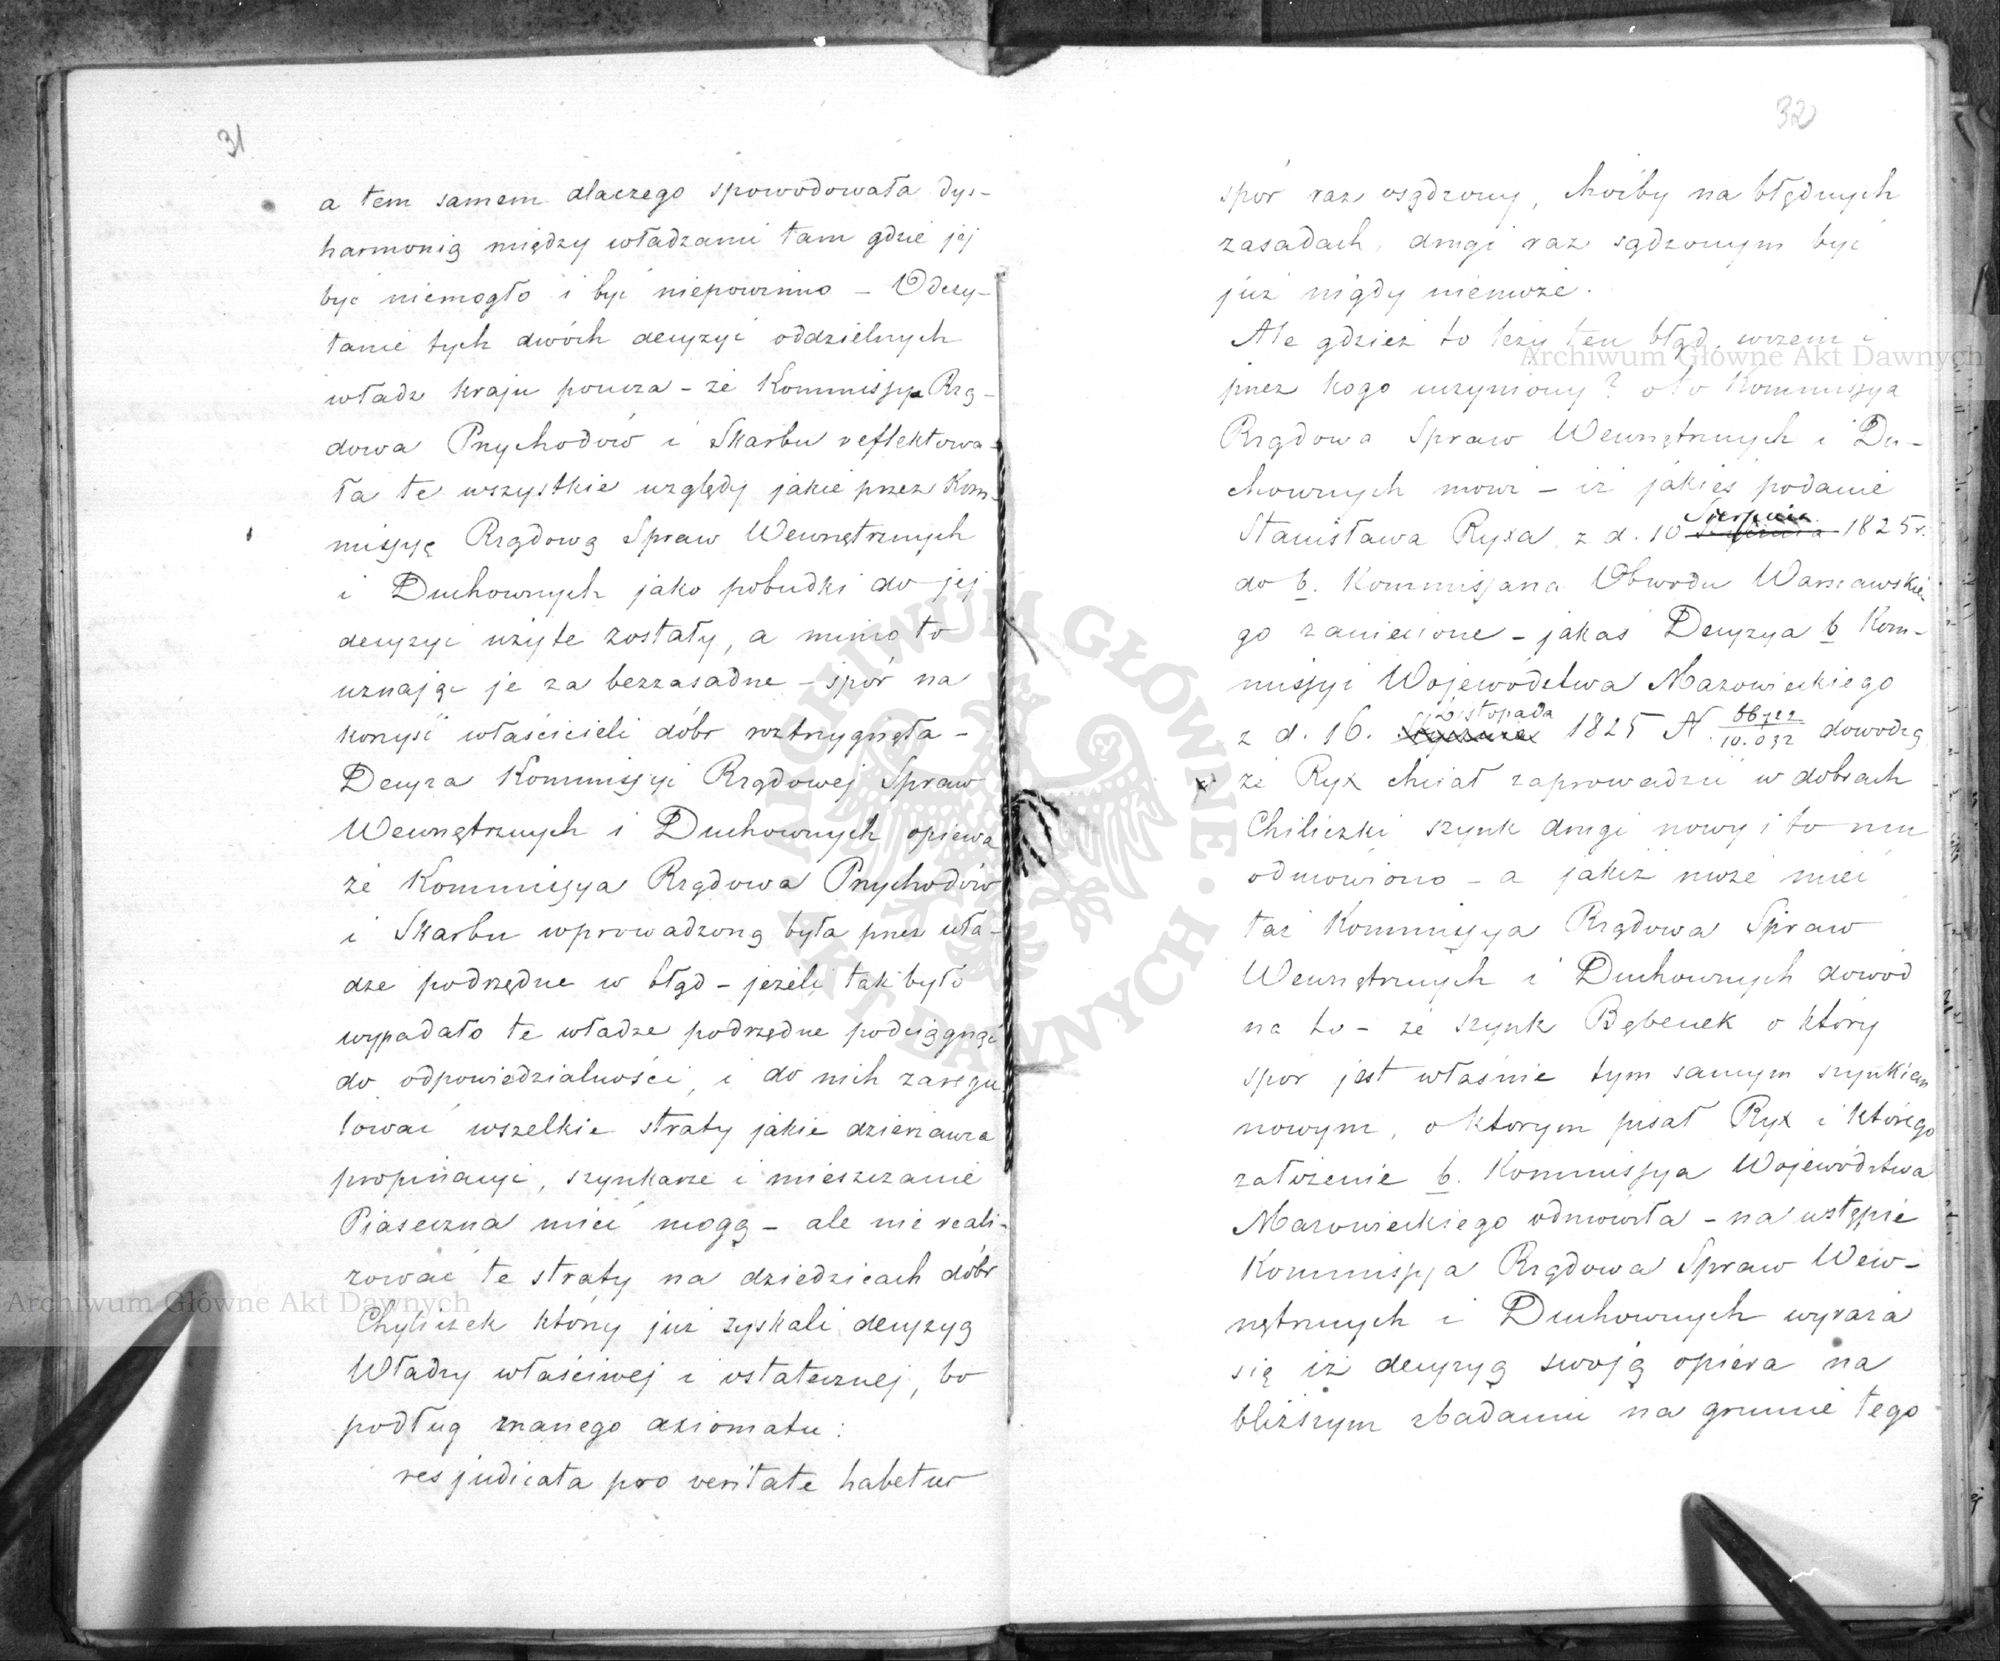 31
a tem samem dlaczego spowodowała dys-
harmonią między władzami tam gdzie jej
być niemogło i być niepowinno – Odczy-
tanie tych dwóch decyzyi oddzielnych
władz kraju poucza – że Kommissya Rzą-
dowa Przychodów i Skarbu reflektowa-
ła te wszystkie względy jakie przez Kom-
missyę Rządową Spraw Wewnętrznych
i Duchownych jako pobudki do jej
decyzyi użyte zostały, a mimo to
uznając je za bezzasadne – spór na
korzyść właścicieli dóbr roztrzygnęła –
Decyza Kommissyi Rządowej Spraw
Wewnętrznych i Duchownych opiewa
że Kommissya Rządowa Przychodów
i Skarbu wprowadzoną była przez wła-
dze podrzędne w błąd – jeżeli tak było
wypadało te władze podrzędne podciągnąć
do odpowiedzialności, i do nich zaregu
lować wszelkie straty jakie dzierżawca
propinacyi, szynkarze i mieszczanie
Piaseczna mieć mogą – ale nie reali-
zować te straty na dziedzicach dóbr
Chyliczek którzy już zyskali decyzyą
Władzy właściwej i ostatecznej, bo
podług znanego axiomatu:
res judicata pro veritate habetur
32
spór raz osądzony, choćby na błędnych
zasadach, drugi raz sądzonym być
już nigdy niemoże.
Ale gdzież to leży ten błąd, w czem i
przez kogo uczyniony? oto Kommissya
Rządowa Spraw Wewnętrznych i Du-
chownych mówi – iż jakieś podanie
Sierpnia
Stanisława Ryxa z d. 10 1825 r.
do b. Kommissarza Obwodu Warszawskie
go zaniesione – jakaś Decyzya b Kom-
missyi Województwa Mazowieckiego
Listopada
z d. 16. 1825 N. 66722/10.032 dowodzą
że Ryx chciał zaprowadzić w dobrach
Chiliczki szynk drugi nowy i to mu
odmówiono – a jakiż może mieć
taż Kommissya Rządowa Spraw
Wewnętrznych i Duchownych dowód
na to – że szynk Bębenek o który
spór jest właśnie tym samym szynkiem
nowym, o którym pisał Ryx i którego
założenie b. Kommissya Województwa
Mazowieckiego odmówiła – na wstępie
Kommissya Rządowa Spraw Wew-
nętrznych i Duchownych wyraża
się iż decyzyą swoją opiera na
bliższym zbadaniu na gruncie tego
Archiwum Główne Akt Dawnych
Archiwum Główne Akt Dawnych
ARCHIWUM GŁÓWNE AKT DAWNYCH